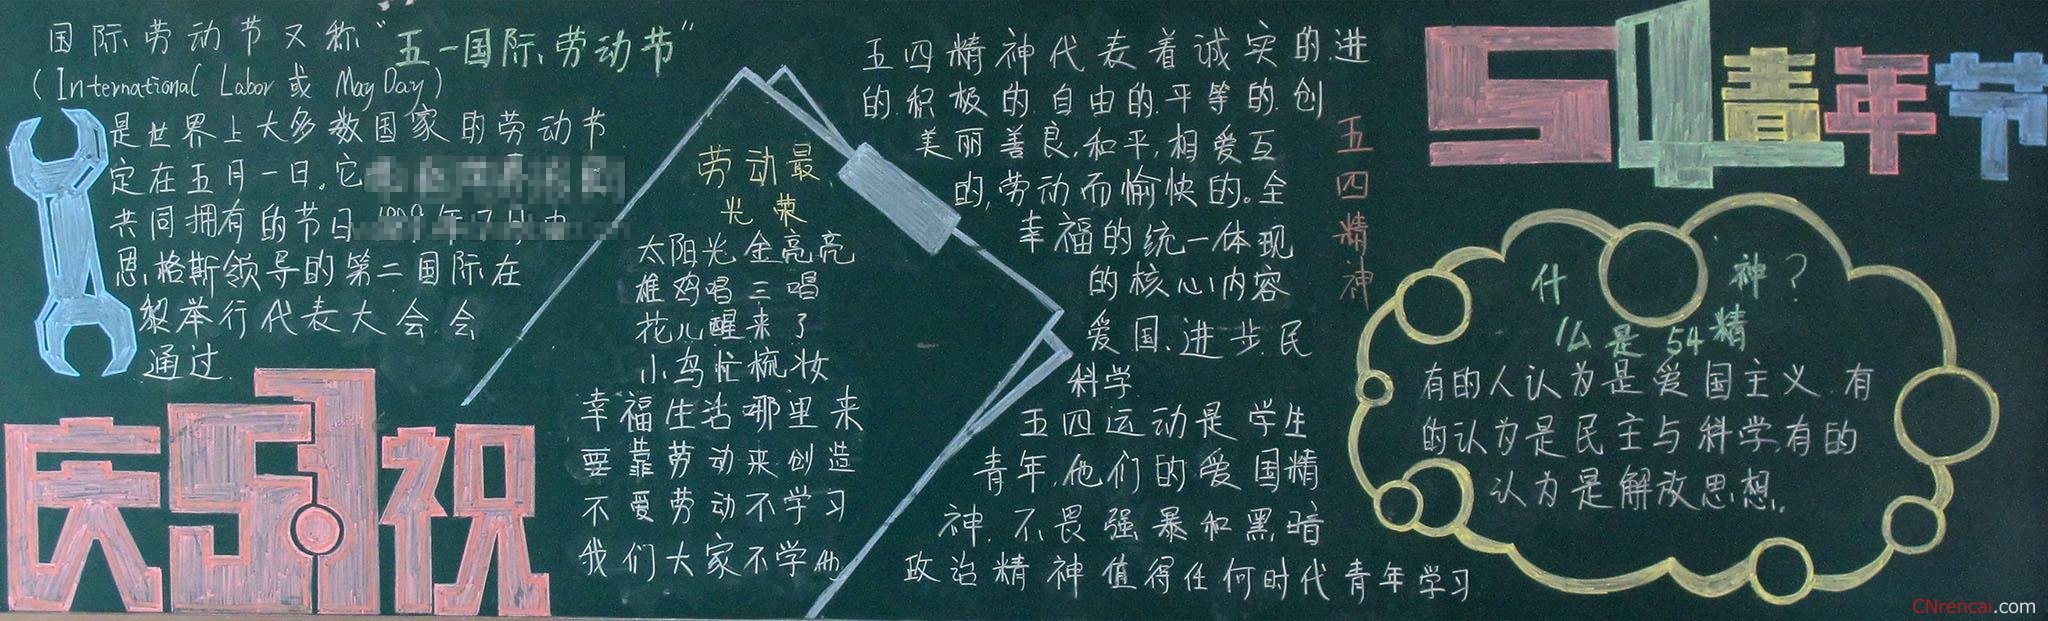 国际劳动节又称"五一国际劳动节"
(International Labor或 May Day)
是世界上大多数国家的劳动节
定在五月一日。它
共同拥有的节日
恩格斯领导的第二国际在
黎举行代表大会会
通过
庆5.1祝
劳动最
光荣
太阳光金亮亮
雄鸡唱三唱
花儿醒来了
小鸟忙梳妆
幸福生活哪里来
要靠劳动来创造
不爱劳动不学习
我们大家不学他
五四精神代表着诚实的.进
的.积极的.自由的.平等的.创
美丽善良.和平,相爱互
的,劳动而愉快的.全
幸福的统一体现
的核心内容
爱国.进步.民
科学
五四运动是学生
青年,他们的爱国精
神.不畏强暴和黑暗
政治精神值得任何时代青年学习
五四精神
54青年节
什 神?
么是54精
有的人认为是爱国主义.有
的认为是民主与科学,有的
认为是解放思想.
CNrencai.com